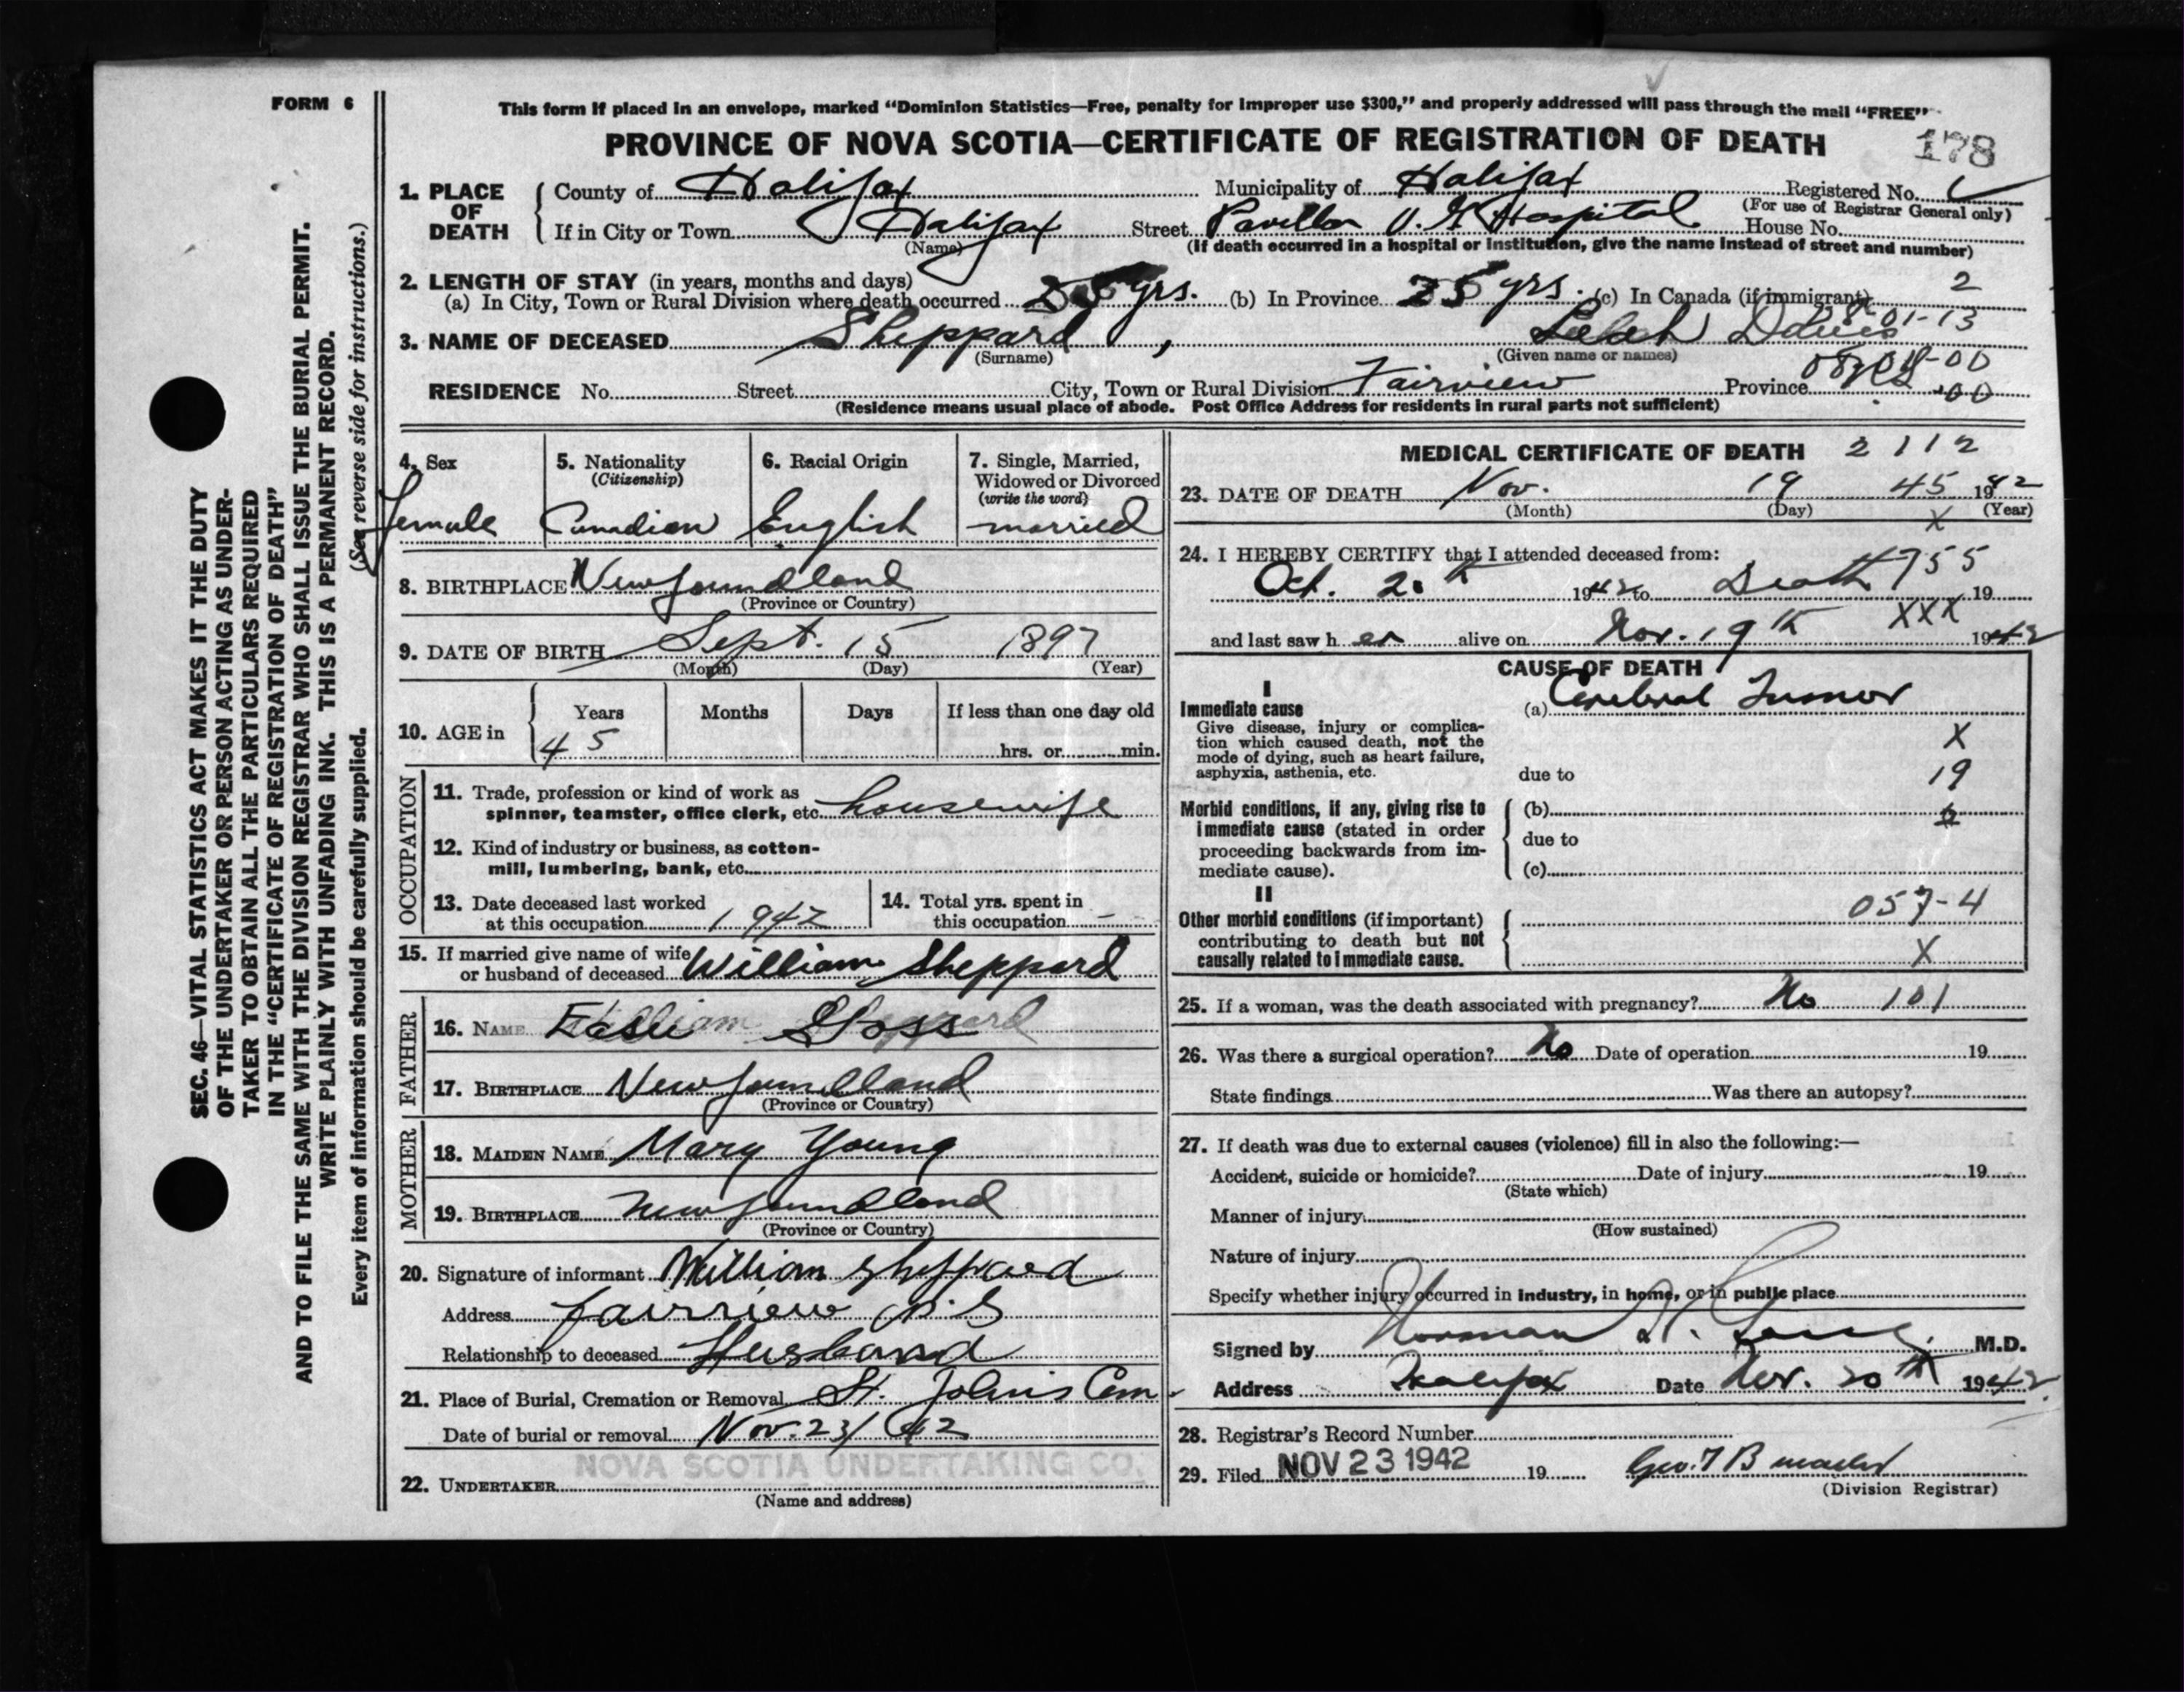 FORM 6
This form if placed in an envelope, marked “Dominion Statistics—Free, penalty for improper use $300,” and properly addressed will pass through the mail “FREE”
PROVINCE OF NOVA SCOTIA—CERTIFICATE OF REGISTRATION OF DEATH
178
1. PLACE OF DEATH
County of Halifax Municipality of Halifax Registered No.
(For use of Registrar General only)
If in City or Town Halifax Street Pavilion V. G. Hospital House No.
(Name) (If death occurred in a hospital or institution, give the name instead of street and number)
2. LENGTH OF STAY (in years, months and days)
(a) In City, Town or Rural Division where death occurred 25 yrs. (b) In Province 25 yrs. (c) In Canada (if immigrant) 2
3. NAME OF DECEASED Sheppard, Leah
(Surname) (Given name or names)
RESIDENCE No. Street City, Town or Rural Division Fairview Province
(Residence means usual place of abode. Post Office Address for residents in rural parts not sufficient)
4. Sex
Female
5. Nationality
(Citizenship)
Canadian
6. Racial Origin
English
7. Single, Married,
Widowed or Divorced
(write the word)
married
8. BIRTHPLACE Newfoundland
(Province or Country)
9. DATE OF BIRTH Sept. 15 1897
(Month) (Day) (Year)
10. AGE in
Years Months Days If less than one day old
45 hrs. or min.
OCCUPATION
11. Trade, profession or kind of work as
spinner, teamster, office clerk, etc. housewife
12. Kind of industry or business, as cotton-
mill, lumbering, bank, etc.
13. Date deceased last worked
at this occupation 1942
14. Total yrs. spent in
this occupation —
15. If married give name of wife
or husband of deceased William Sheppard
FATHER
16. NAME
17. BIRTHPLACE Newfoundland
(Province or Country)
MOTHER
18. MAIDEN NAME Mary Young
19. BIRTHPLACE Newfoundland
(Province or Country)
20. Signature of informant William Sheppard
Address Fairview N.S
Relationship to deceased Husband
21. Place of Burial, Cremation or Removal St. John's Cem.
Date of burial or removal Nov. 23/42
NOVA SCOTIA UNDERTAKING CO.
22. UNDERTAKER
(Name and address)
MEDICAL CERTIFICATE OF DEATH 2 1 1 2
23. DATE OF DEATH Nov. 19 45 1942
(Month) (Day) (Year)
X
24. I HEREBY CERTIFY that I attended deceased from:
Oct. 20th 1942 to Death 19
755
XXX
and last saw her alive on Nov. 19th 1942
CAUSE OF DEATH
I
Immediate cause
Give disease, injury or complica-
tion which caused death, not the
mode of dying, such as heart failure,
asphyxia, asthenia, etc.
(a) Cerebral Tumor
X
due to 19
Morbid conditions, if any, giving rise to
immediate cause (stated in order
proceeding backwards from im-
mediate cause).
(b)
due to
(c)
II
Other morbid conditions (if important)
contributing to death but not
causally related to immediate cause.
057-4
X
25. If a woman, was the death associated with pregnancy? No 101
26. Was there a surgical operation? No Date of operation 19
State findings Was there an autopsy?
27. If death was due to external causes (violence) fill in also the following:—
Accident, suicide or homicide? Date of injury 19
(State which)
Manner of injury
(How sustained)
Nature of injury
Specify whether injury occurred in industry, in home, or in public place
Signed by Norman H. M.D.
Address Halifax Date Nov. 20th 1942.
28. Registrar's Record Number
29. Filed NOV 23 1942 19
(Division Registrar)
SEC. 46—VITAL STATISTICS ACT MAKES IT THE DUTY
OF THE UNDERTAKER OR PERSON ACTING AS UNDER-
TAKER TO OBTAIN ALL THE PARTICULARS REQUIRED
IN THE “CERTIFICATE OF REGISTRATION OF DEATH”
AND TO FILE THE SAME WITH THE DIVISION REGISTRAR WHO SHALL ISSUE THE BURIAL PERMIT.
WRITE PLAINLY WITH UNFADING INK. THIS IS A PERMANENT RECORD.
Every item of information should be carefully supplied. (See reverse side for instructions.)